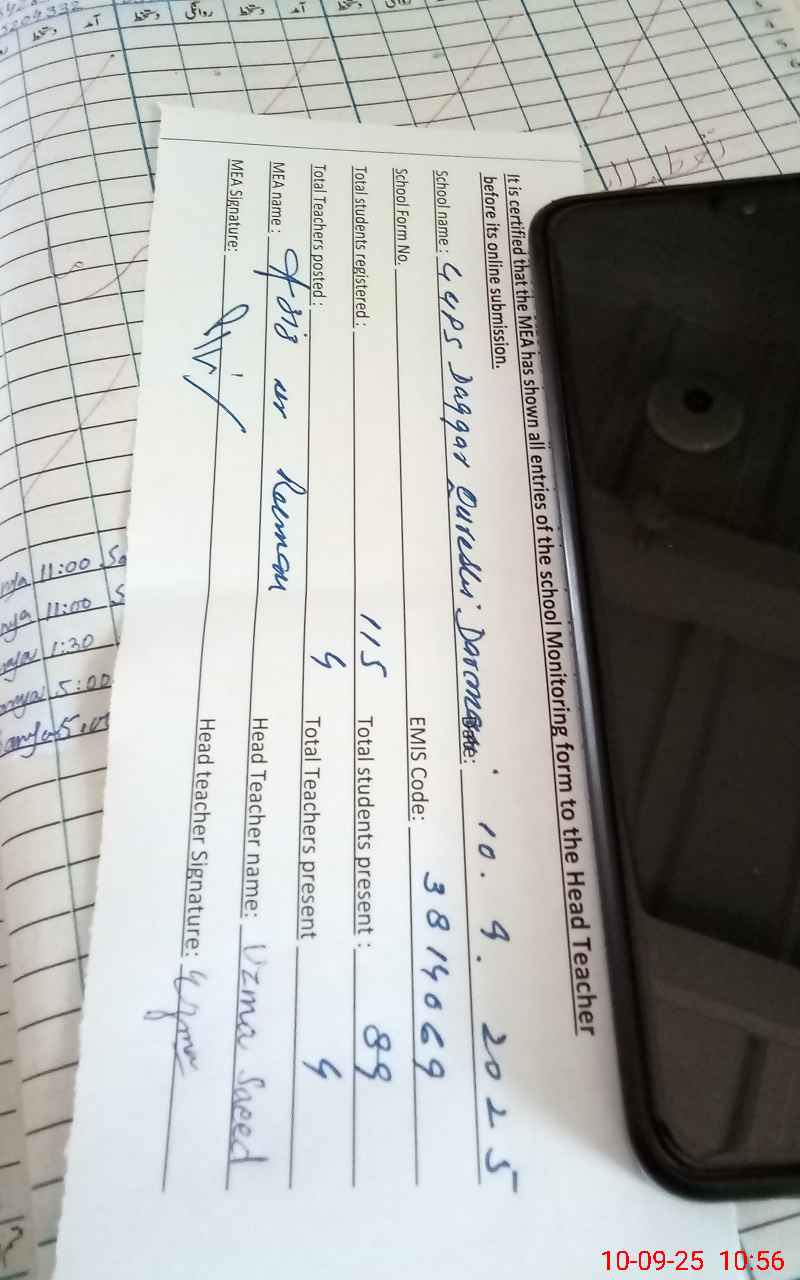 It is certified that the MEA has shown all entries of the school Monitoring form to the Head Teacher
before its online submission.
School name: GGPS Daggar Qureshi Darmana Date: 10.9.2025
School Form No. EMIS Code: 3814069
Total students registered: 115 Total students present: 89
Total Teachers posted: 4 Total Teachers present 4
MEA name: ur Rehman Head Teacher name: Uzma Saeed
MEA Signature: Head teacher Signature: Uzma
11:00
11:00
1:30
5:00
10-09-25 10:56